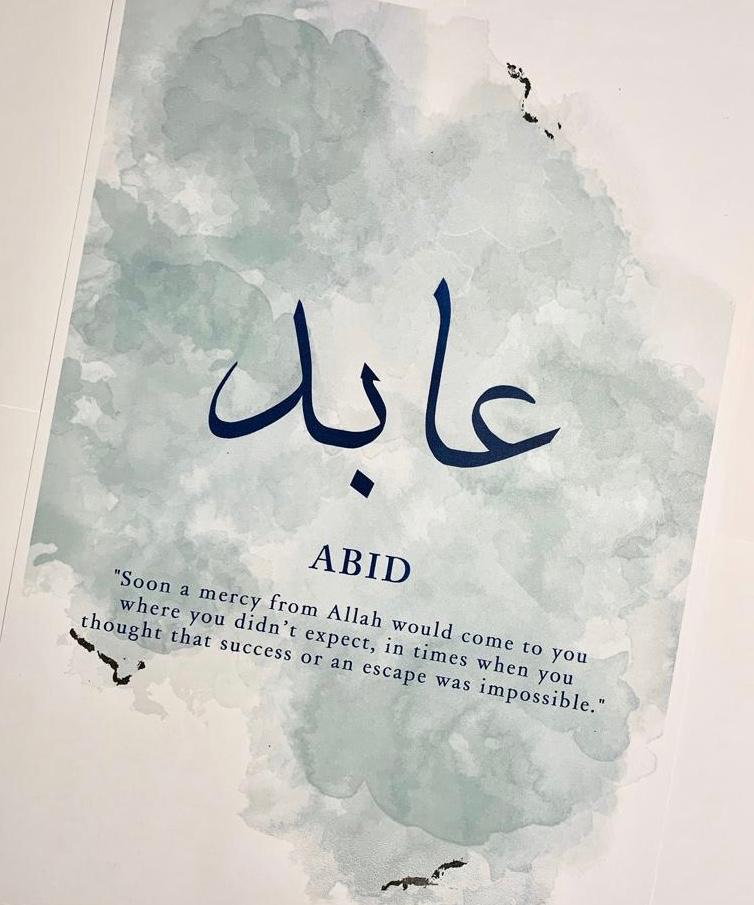 عابد
ABID
"Soon a mercy from Allah would come to you
where you didn't expect, in times when you
thought that success or an escape was impossible."